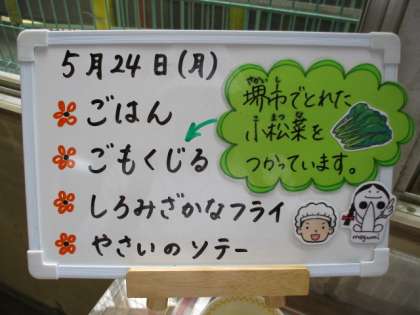 5月24日(月)
ごはん
ごもくじる
しろみざかなフライ
やさいのソテー
さかい し
堺市でとれた
こ まつ な
小松菜を
つかっています。
megumi